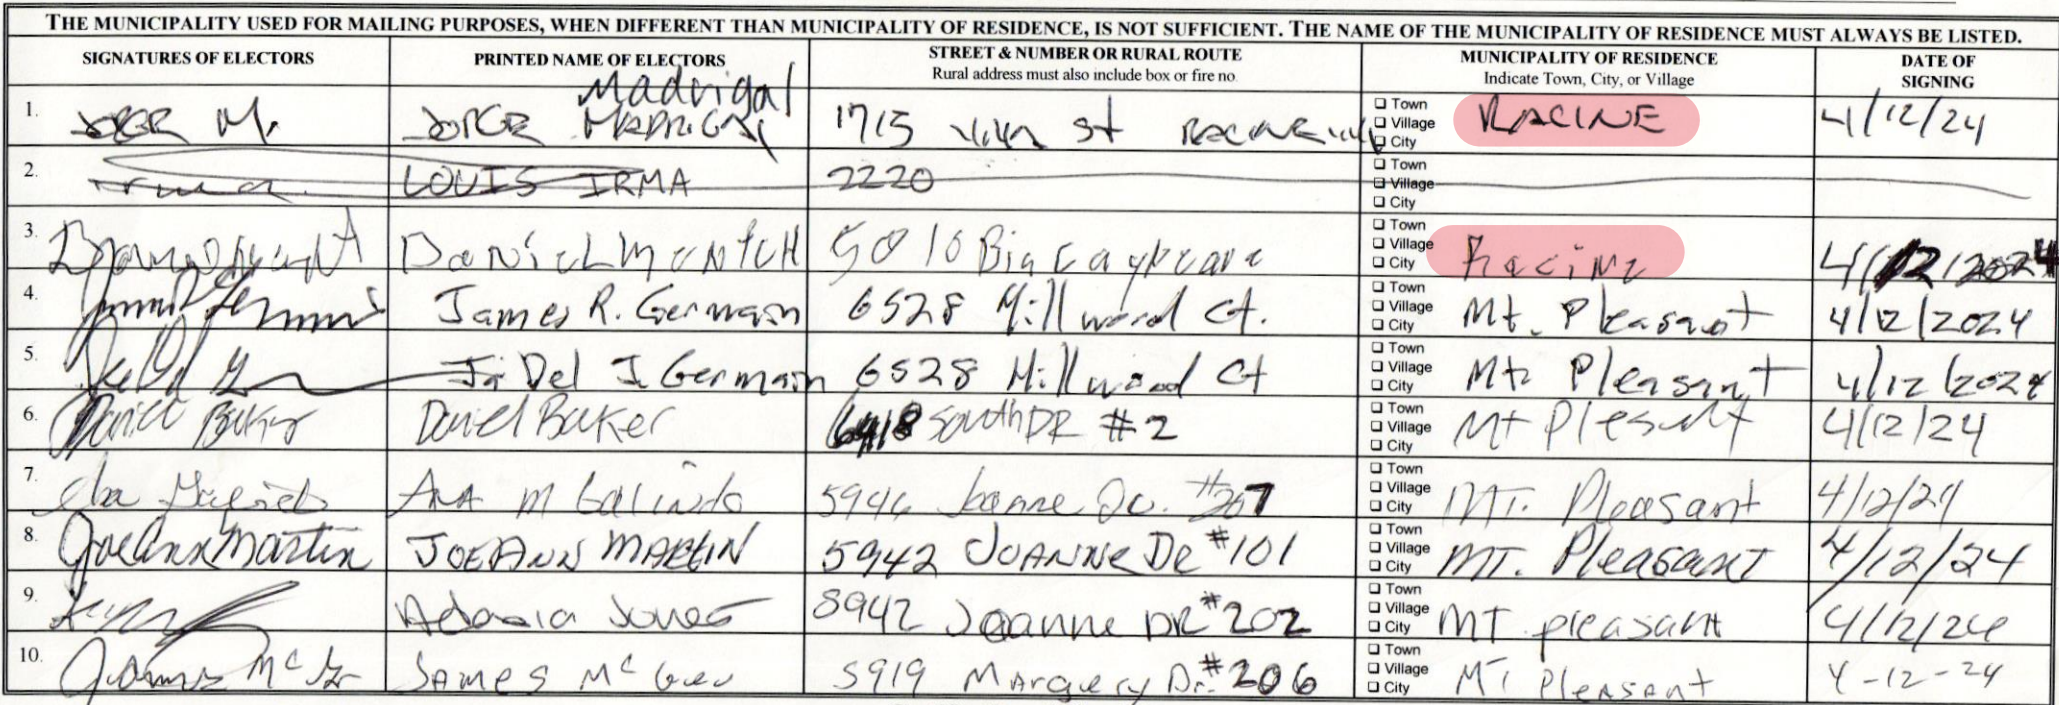 THE MUNICIPALITY USED FOR MAILING PURPOSES, WHEN DIFFERENT THAN MUNICIPALITY OF RESIDENCE, IS NOT SUFFICIENT. THE NAME OF THE MUNICIPALITY OF RESIDENCE MUST ALWAYS BE LISTED.
SIGNATURES OF ELECTORS PRINTED NAME OF ELECTORS STREET & NUMBER OR RURAL ROUTE Rural address must also include box or fire no MUNICIPALITY OF RESIDENCE Indicate Town, City, or Village DATE OF SIGNING
Madrigal
1. M. JORGE MADRIGAL 1715 st RACINE Town Village City RACINE 4/12/24
2. Irma LOUIS IRMA 2220 Town Village City
3. Daniel 5010 Big Town Village City Racine 4/12/2024
4. James R. Germain 6528 Millwood Ct. Town Village City Mt. Pleasant 4/12/2024
5. Ja Del J. Germain 6528 Millwood Ct Town Village City Mt Pleasant 4/12/2024
6. Daniel Baker Daniel Baker 6418 South DR #2 Town Village City Mt Plesant 4/12/24
7. ANA M Galindo 5946 Joanne Dr. #207 Town Village City MT. Pleasant 4/12/24
8. JoeAnn Martin JOEANN MARTIN 5942 JOANNE DR #101 Town Village City MT. Pleasant 4/12/24
9. Jones 5942 Joanne DR #202 Town Village City MT pleasant 4/12/24
10. James McGee JAMES McGee 5919 Margery Dr. #206 Town Village City MT Pleasant 4-12-24